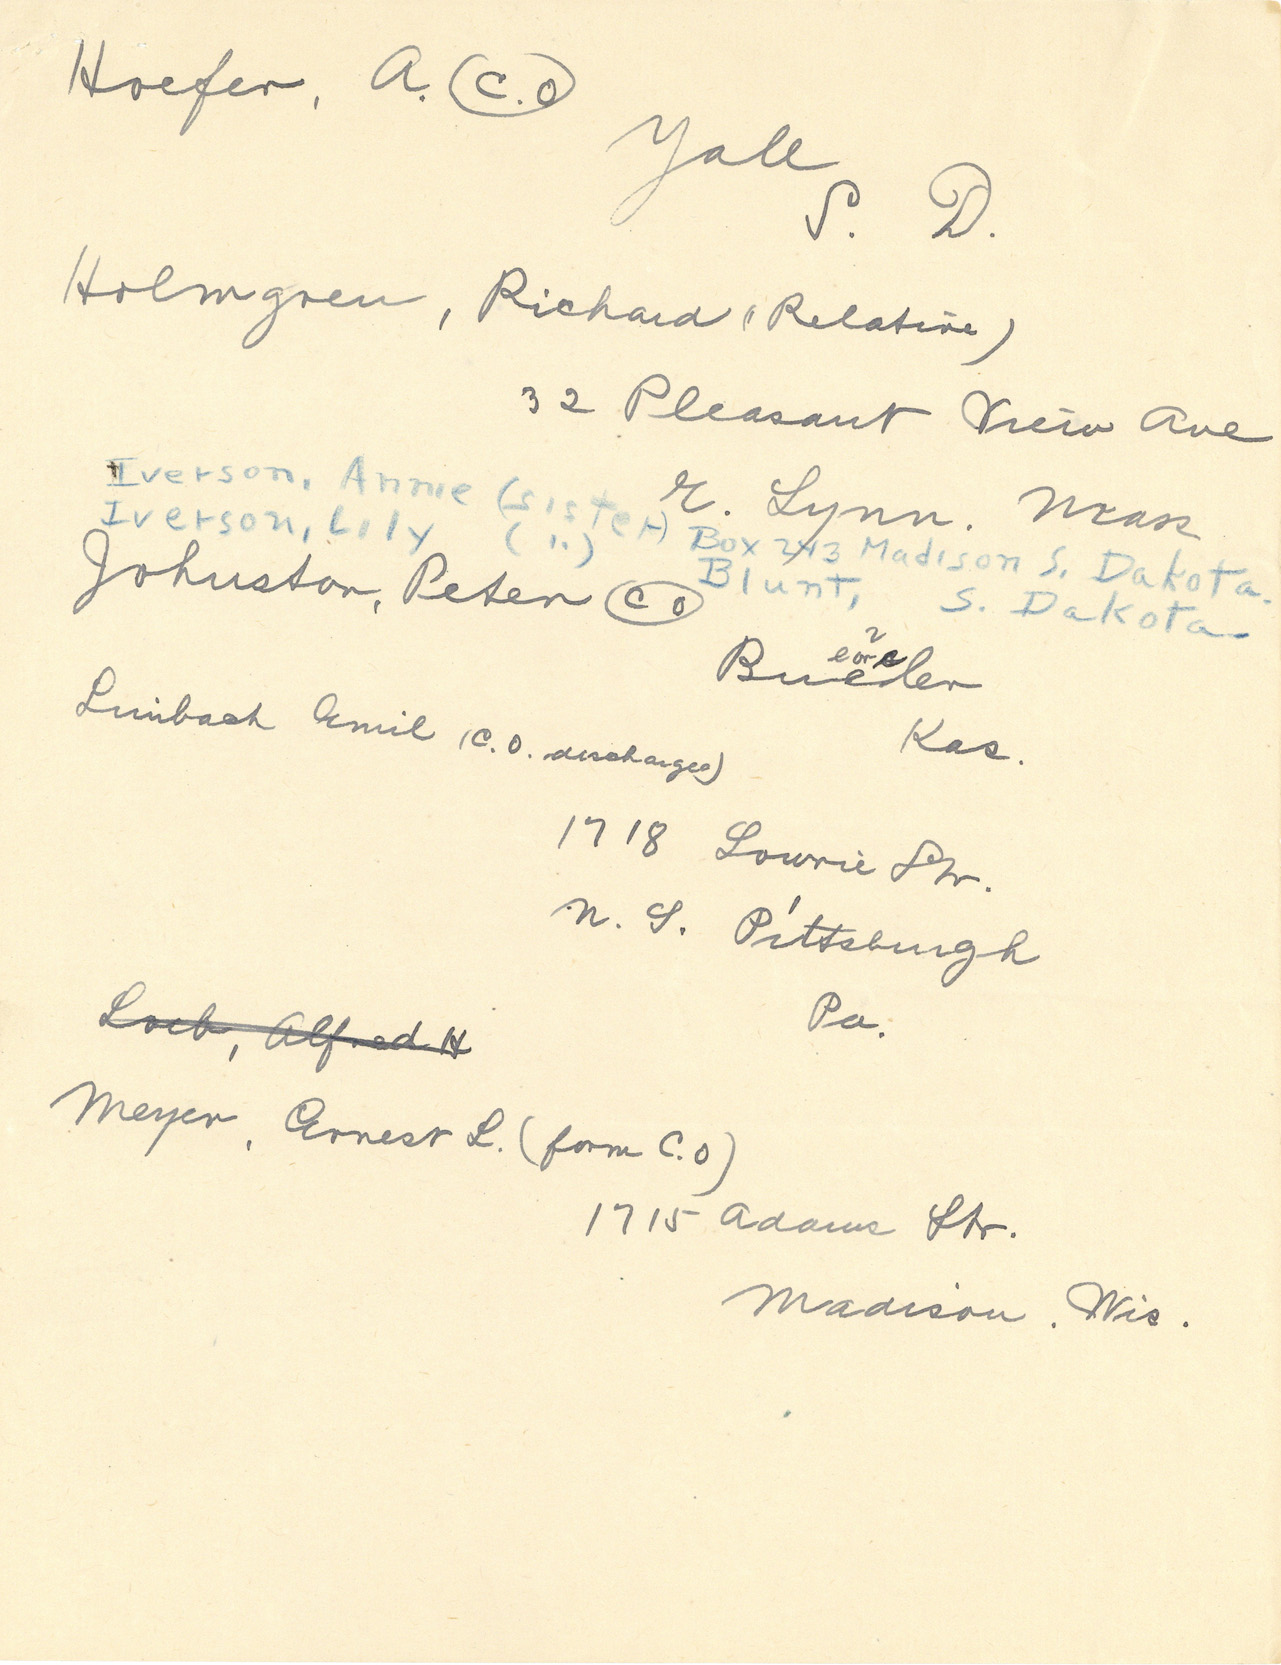 Hoefer, A. (C.O)
Yale
S. D.
Holmgren, Richard (Relative)
32 Pleasant View Ave
E. Lynn. Mass
Iverson, Annie (sister) Box 243 Madison S. Dakota.
Iverson, Lily ( " ) Blunt, S. Dakota
Johnston, Peter (C O)
e or c ?
Bueler
Kas.
Limbach Emil (C. O. discharged)
1718 Lowrie Str.
N. S. Pittsburgh
Pa.
Loeb, Alfred H
Meyer, Ernest L. (form C.O)
1715 Adams Str.
Madison. Wis.